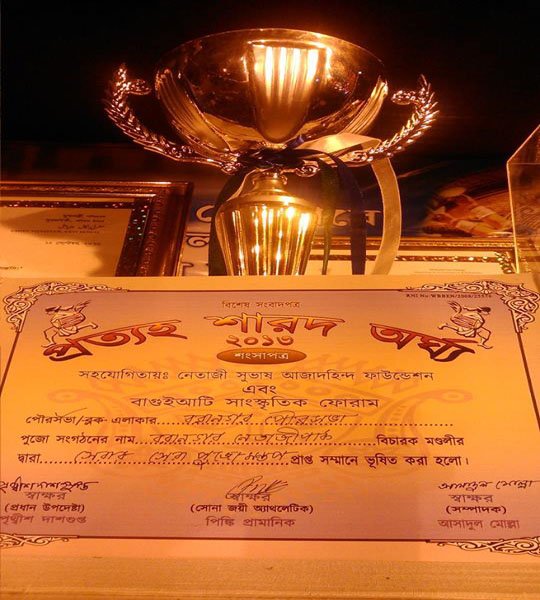 বিশেষ সংবাদপত্র
প্রত্যহ শারদ অর্ঘ্য
২০১৩
শংসাপত্র
সহযোগিতায়ঃ নেতাজী সুভাষ আজাদহিন্দ ফাউন্ডেশন
এবং
বাগুইআটি সাংস্কৃতিক ফোরাম
পৌরসভা/ব্লক এলাকার বরানগর পৌরসভা
পুজো সংগঠনের নাম বরানগর নেতাজীপার্ক বিচারক মণ্ডলীর
দ্বারা সেরার সেরা পুজো মন্ডপ প্রাপ্ত সম্মানে ভূষিত করা হলো।
স্বাক্ষর স্বাক্ষর স্বাক্ষর
(প্রধান উপদেষ্টা) (সোনা জয়ী অ্যাথলেটিক) (সম্পাদক)
পৃথ্বীশ দাশগুপ্ত পিঙ্কি প্রামানিক আসাদুল মোল্লা